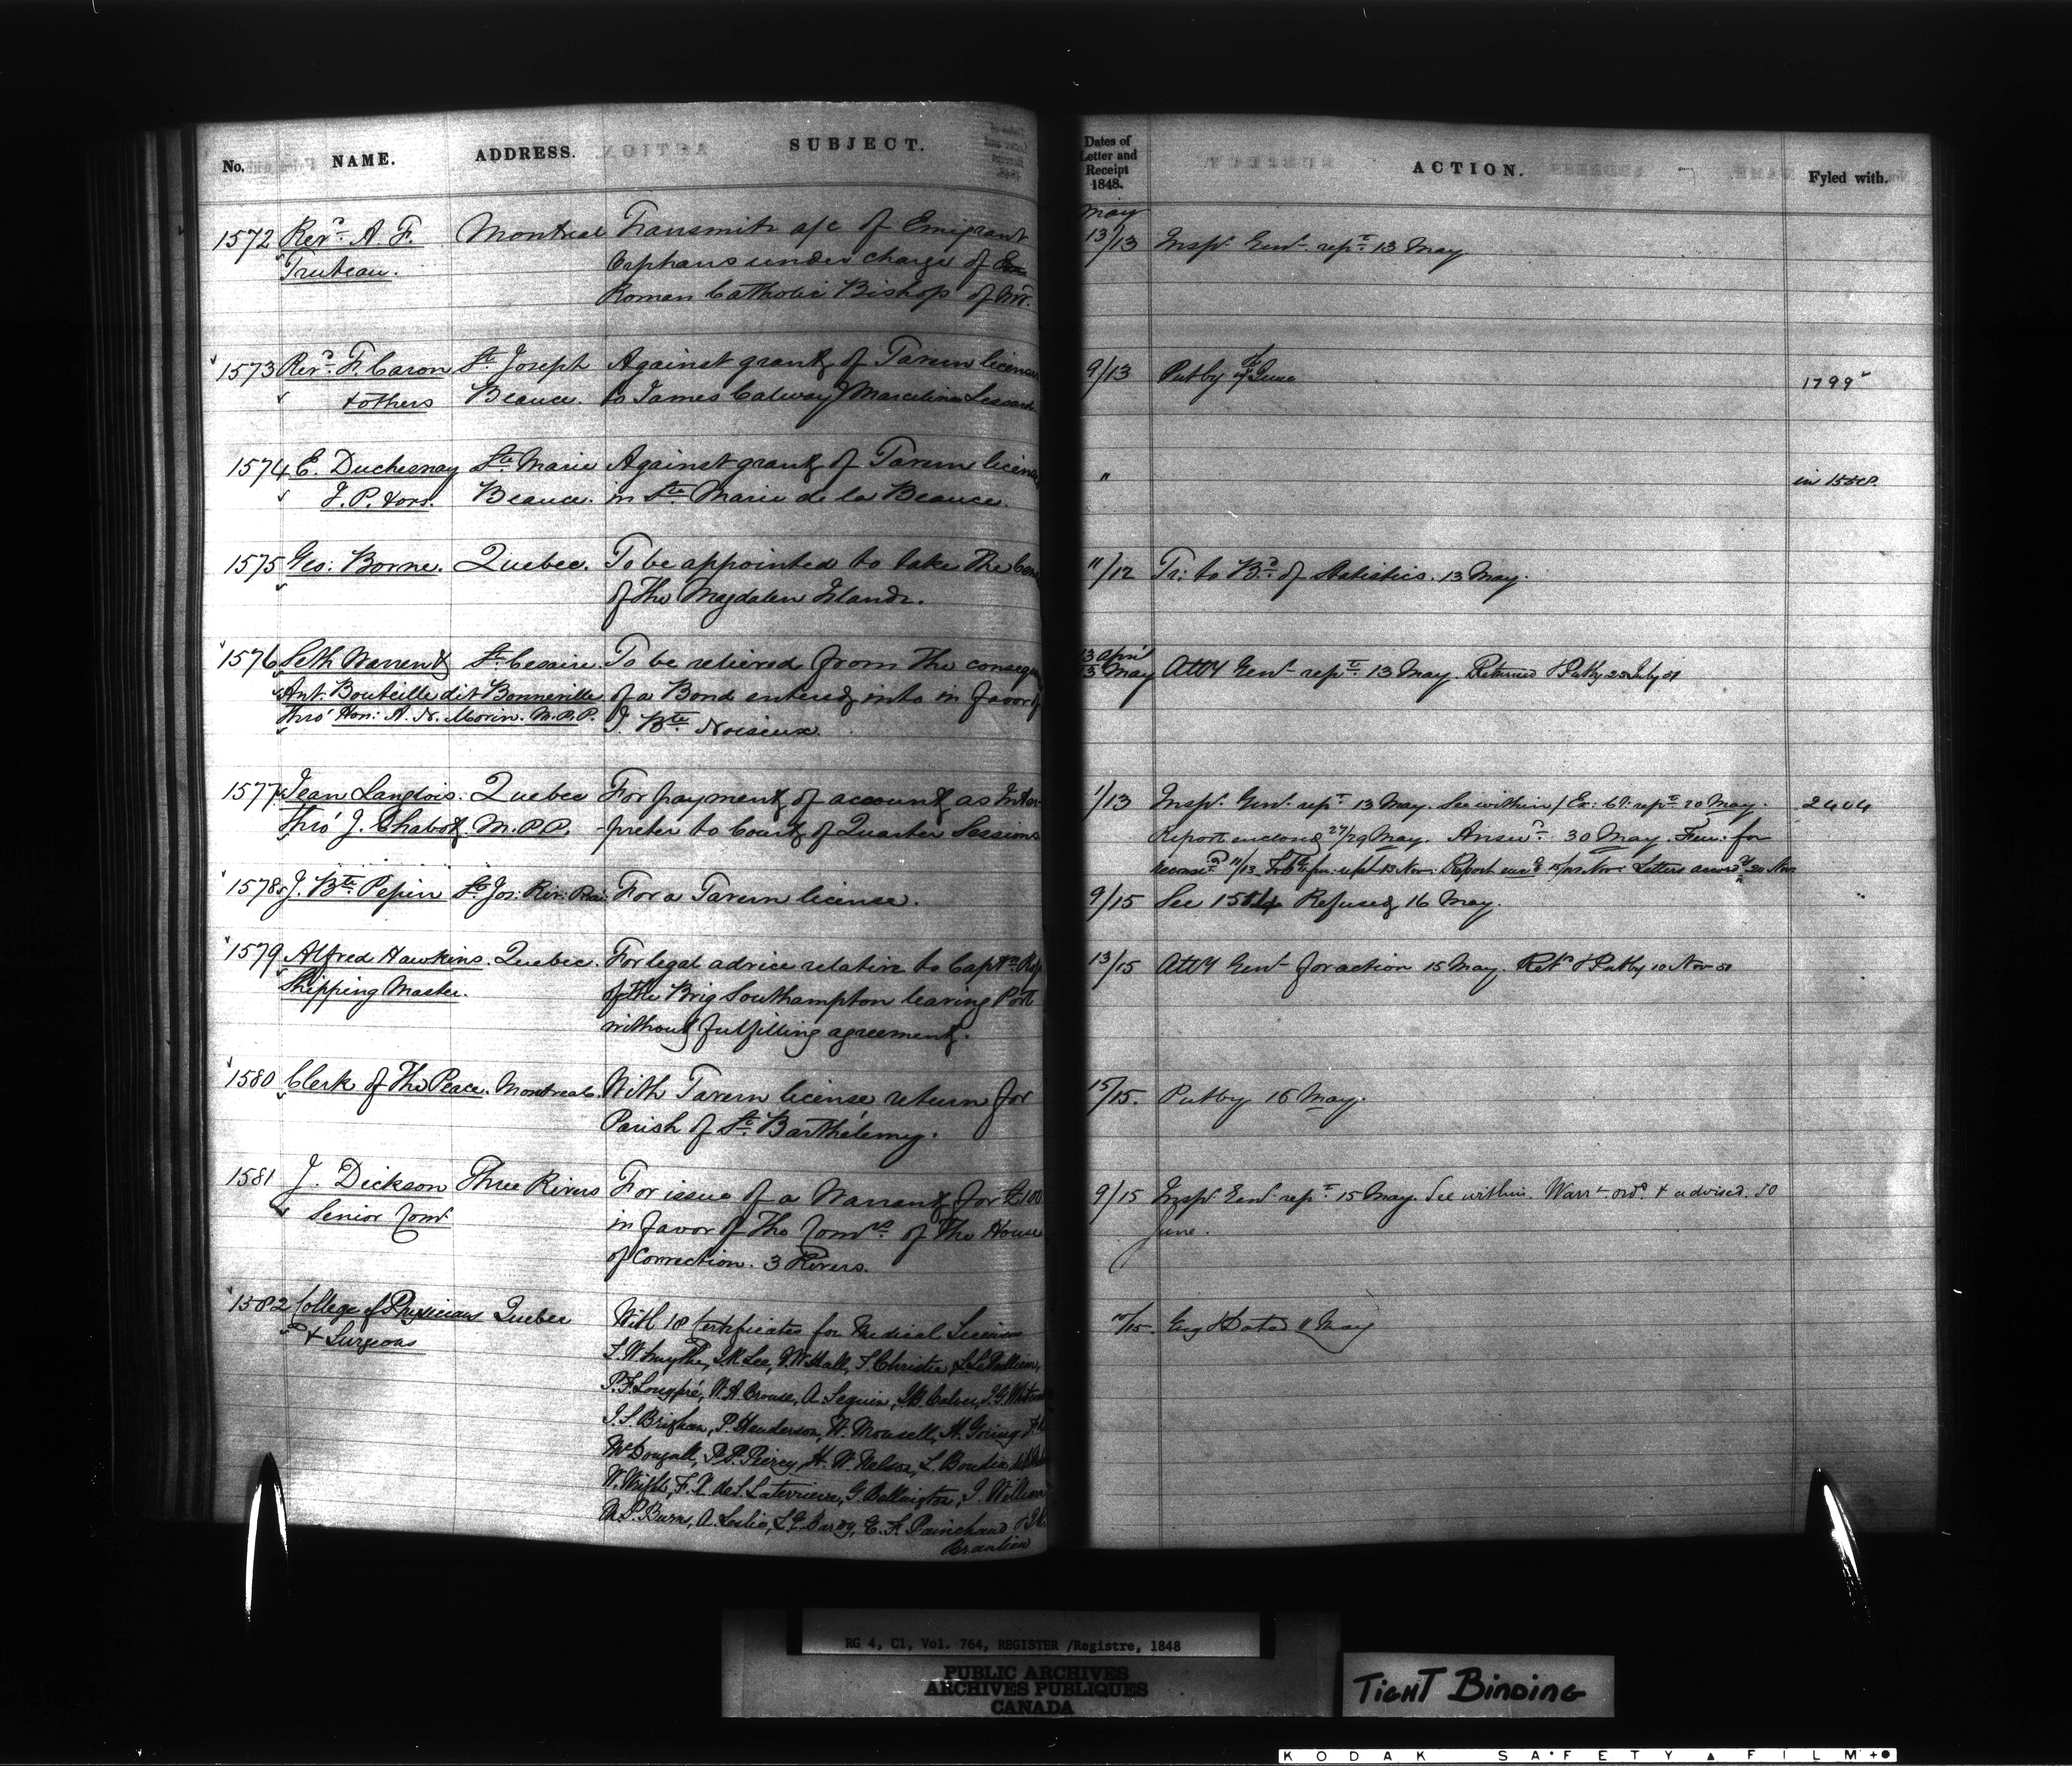 No. NAME. ADDRESS. SUBJECT.
Dates of Letter and Receipt 1848. ACTION. Fyled with.
1572 Revd. A. F. Montreal Transmits a/c of Emigrant
Truteau. Orphans under charge of
Roman Catholic Bishop of
May
13/13 Inspr. Genl. rept. 13 May
1573 Revd. F. Caron St. Joseph Against grantg of Tavern license
& others Beauce. to James Calway & Marcelin Lessard
9/13 Put by 7 June 1799
1574 E. Duchesnay Ste. Marie Against grantg of Tavern license
J. P. & ors. Beauce. in Ste. Marie de la Beauce.
" in 1558.
1575 Geo: Borne. Quebec. To be appointed to take the
of the Magdalen Islands.
11/12 Tr: to Bd. of Statistics. 13 May.
1576 Seth Warren & St. Cesaire. To be relieved from the
Ant: Bouteille dit Bonneville of a Bond entered into in favor of
Thro' Hon: A. N. Morin. M.P.P. J. Bte. Noiseux.
13 April
13 May Atty Genl. rept. 13 May. Returned & Put by 23 July 51
1577 Jean Langlois. Quebec For payment of account as Inter-
Thro' J. Chabot M.P.P. -preter to Court of Quarter Sessions
1/13 Inspr. Genl. rept. 13 May. See within / Ex: Cl: rept. 20 May. 2404
Report enclosed 27/29 May. Answd. 30 May. for
11/13 13 Nov: Report Nov. Letters 20 Nov
1578 J. Bte. Pepin St. Jos: Riv: For a Tavern license.
9/15 See 1584 Refused 16 May.
1579 Alfred Hawkins. Quebec. For legal advice relative to Captn.
Shipping Master. of the Brig Southampton leaving Port
without fulfilling agreement.
13/15 Atty Genl. for action 15 May. Retd. & Put by 10 Nov 51
1580 Clerk of the Peace. Montreal. With Tavern license return for
Parish of St. Barthélemy.
15/15. Put by 16 May.
1581 J. Dickson Three Rivers For issue of a Warrant for £100
Senior Comr. in favor of the Comrs. of the House
of Correction. 3 Rivers.
9/15 Inspr. Genl. rept. 15 May. See within. Warrt. ord. & advised. 30
June.
1582 College of Physicians Quebec With 18 Certificates for Medical Licenses
& Surgeons
/15. Eng & Dated 11 May
S. W. Smythe, J. R. Lee, J. W. Hall, S. Christie,
P. F. Longpré, W. A. Brouse, A. Seguin, J. B. Culver,
J. S. Brigham, P. Henderson, W. Mousell, H. Going,
McDougall, Peircy, H. W. Nelson, L. Boudin,
W. Wright, F. X. de S. Laterriere, G. Bellington, J. William
M. P. Burns, A. Leslie, Bardy, E. F. Painchaud &
Beaulieu
RG 4, C1, Vol. 764, REGISTER /Registre, 1848
PUBLIC ARCHIVES
ARCHIVES PUBLIQUES
CANADA
TIGHT BINDING
KODAK SAFETY FILM